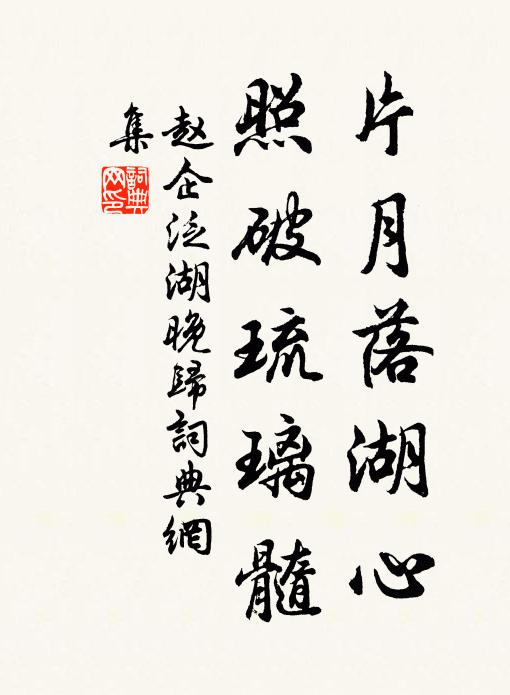 片月落湖心
照破琉璃髓
赵企泛湖晚歸詞典網
集
詞典网印